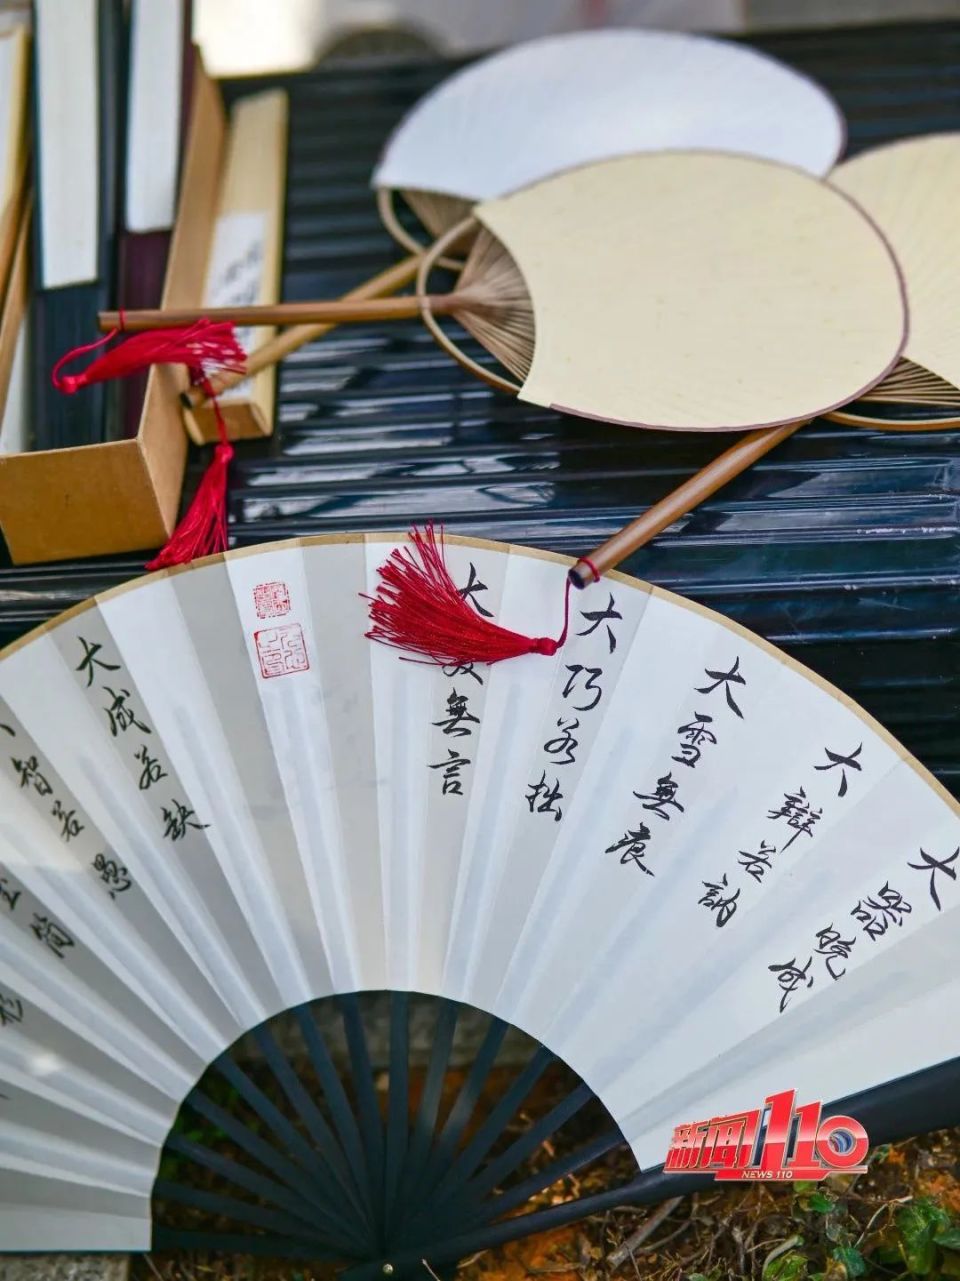 大器晚成
大辯若訥
大雪無痕
大巧若拙
大無言
大成若缺
智若愚
至简
新闻110
NEWS 110